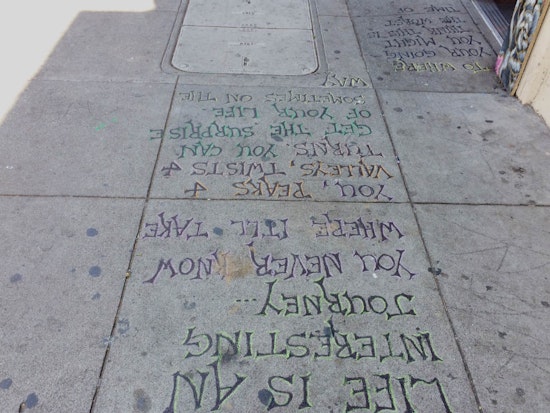 LIFE IS AN
INTERESTING
JOURNEY...
YOU NEVER KNOW
WHERE IT'LL TAKE
YOU, PEAKS &
VALLEYS, TWISTS &
TURNS. YOU CAN
GET THE SURPRISE
OF YOUR LIFE.
SOMETIMES ON THE
WAY
TO WHERE
YOUR GOING
YOU MIGHT
THINK THIS IS
THE WORST
TIME OF